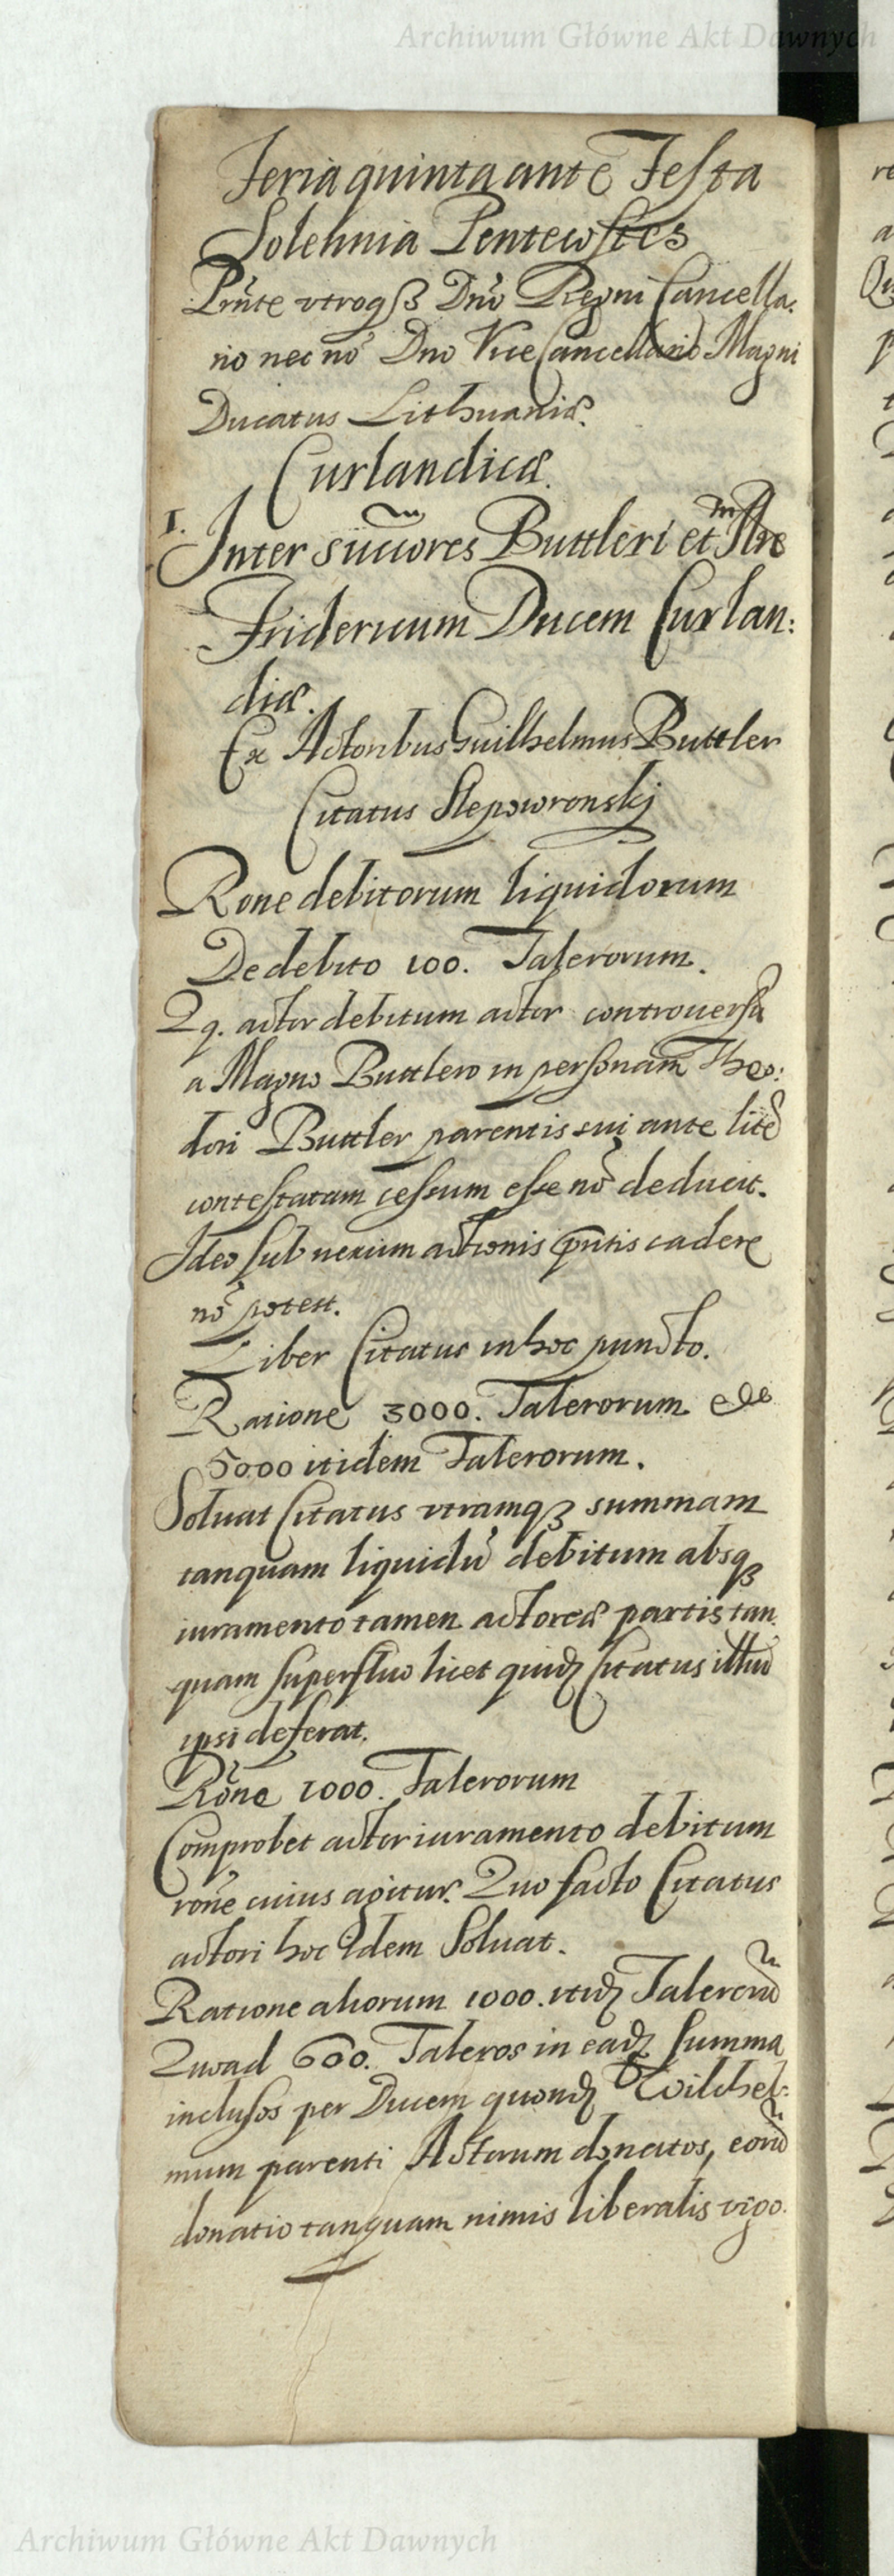 Archiwum Główne Akt Dawnych
Feria quinta ante Festa
Solennia Pentecostes
Pñte vtroq₃ Dño Regni Cancella:
rio nec nõ Dno Vice Cancellario Magni
Ducatus Lithuaniæ.
Curlandicæ.
1. Inter succores Buttleri et Illre
Fridericum Ducem Curlan:
diæ.
Ex Actoribus Guilhelmus Buttler
Citatus Slepowronskj
Rone debitorum liquidorum
De debito 100. Talerorum.
Qq. actor debitum actor controuersũ
a Magno Buttlero in personam Theo:
dori Buttler parentis sui ante litẽ
contestatam cessum esse nõ deducit.
Ideo sub nexum actionis pñtis cadere
nõ potest.
Liber Citatus in hoc puncto.
Ratione 3000. Talerorum
5000 itidem Talerorum.
Soluat Citatus vtramq₃ summam
tanquam liquidũ debitum absq₃
iuramento tamen actoreæ partis tan
quam superfluo licet quidẓ Citatus illud
ipsi deferat.
Rõne 1000. Talerorum
Comprobet actor iuramento debitum
rõne cuius agitur. Quo facto Citatus
actori hoc idem Soluat.
Ratione aliorum 1000. itidẓ Talerorũ
Quoad 600. Taleros in eadẓ summa
inclusos per Ducem quondẓ Wilhel:
mum parenti Actorum donatos, eorũ
donatio tanquam nimis liberalis vigo.
Archiwum Główne Akt Dawnych